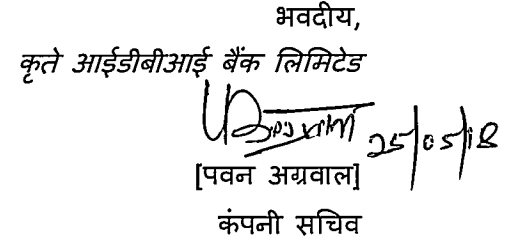 भवदीय,
कृते आईडीबीआई बैंक लिमिटेड
25/05/18
[पवन अग्रवाल]
कंपनी सचिव